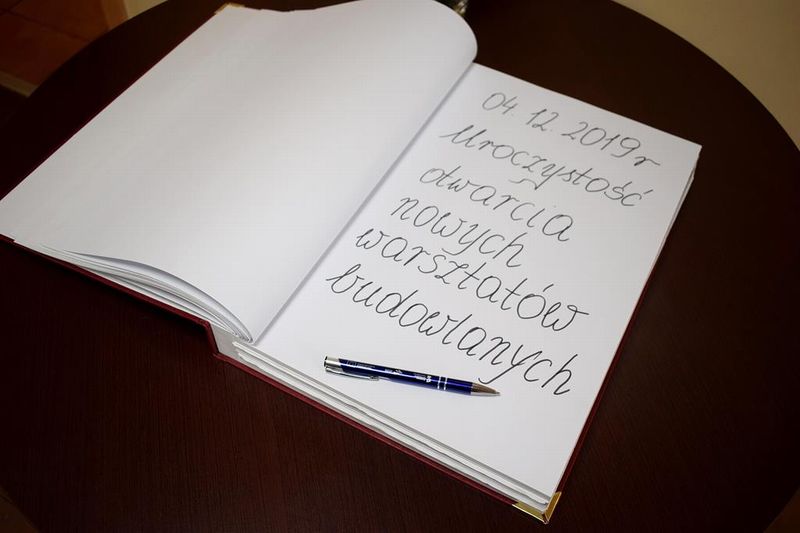 04.12.2019r
Uroczystość
otwarcia
nowych
warsztatów
budowlanych